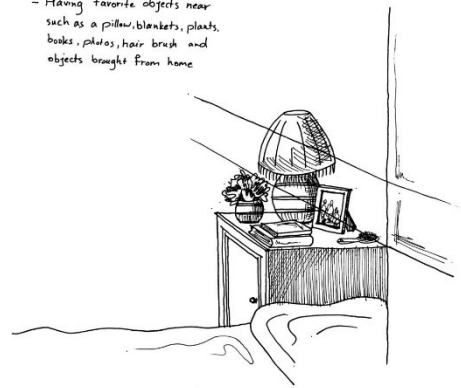 - Having favorite objects near
such as a pillow, blankets, plants,
books, photos, hair brush and
objects brought from home